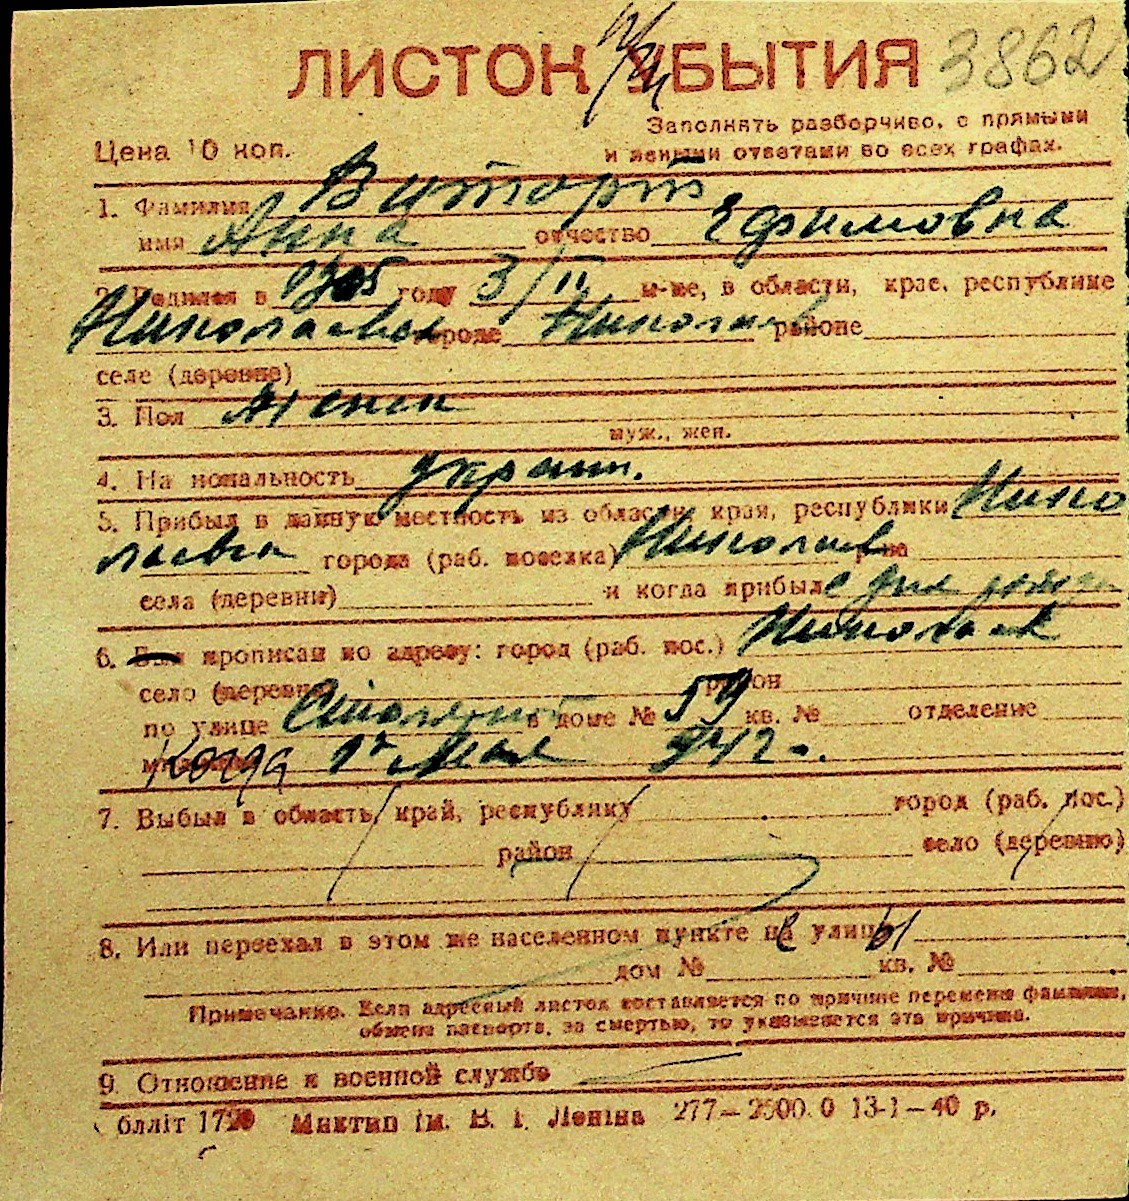 ЛИСТОК УБЫТИЯ 3862
Заполнять разборчиво, с прямыми
Цена 10 коп. и ясными ответами во всех графах.
1. Фамилия Витторт
имя Анна отчество Ефимовна
2. Родился в 1905 году 3/II м-це, в области, крае, республике
Николаевск городе Николаев районе
селе (деревне)
3. Пол женск
муж., жен.
4. Национальность украин.
5. Прибыл в данную местность из области, края, республики Нико
лаевск города (раб. поселка) Николаев
села (деревни) и когда прибыл с дня
6. Был прописан по адресу: город (раб. пос.) Николаев
село (деревня) район
по улице в доме № 59 кв. № отделение
когда 1го мая 942 г.
7. Выбыл в область, край, республику город (раб. пос.)
район село (деревню)
8. Или переехал в этом же населенном пункте на улицу
дом № кв. №
Примечание. Если адресный листок составляется по причине перемены фамилии,
обмена паспорта, за смертью, то указывается эта причина.
9. Отношение к военной службе
Миктип ім. В. І. Леніна 277—2600.0 13-1—40 р.